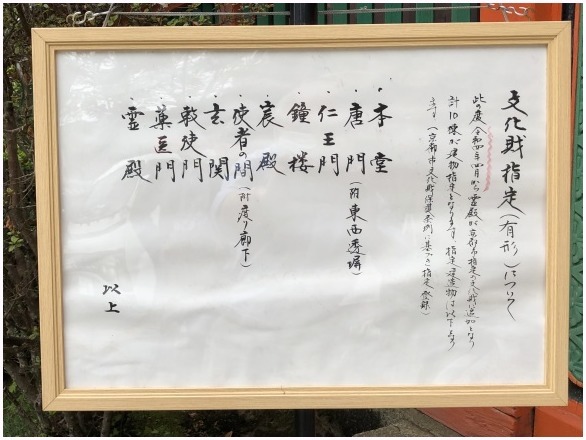 文化財指定(有形)について
此の度令和四年四月から霊殿が京都市指定の文化財に追加となり
計10棟が建物指定となります。指定建造物は以下となり
ます。(京都市文化財保護条例に基づき指定登録)
・本堂
・唐門(附東西透塀)
・仁王門
・鐘楼
・宸殿
・使者の間(附渡り廊下)
・玄関
・勅使門
・薬医門
・霊殿
以上